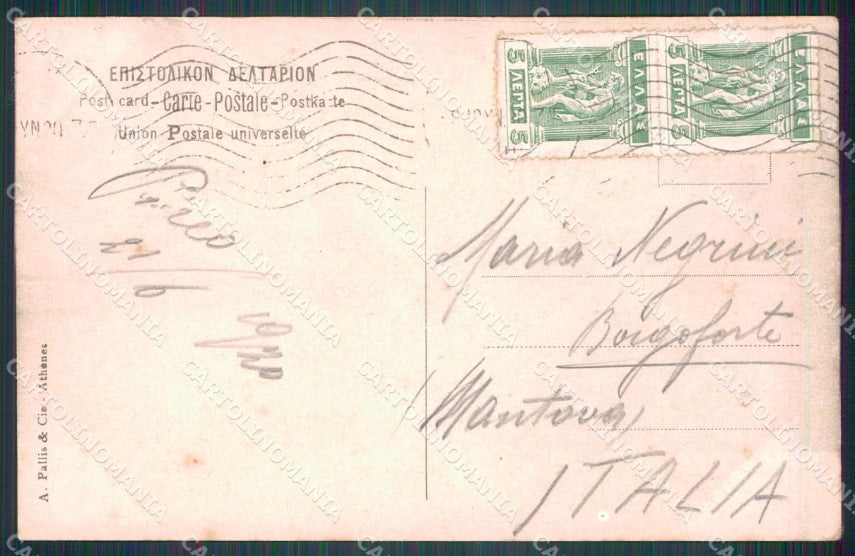 ΕΠΙΣΤΟΛΙΚΟΝ ΔΕΛΤΑΡΙΟΝ
Post card - Carte - Postale - Postkarte
Union Postale universelle
5 ΛΕΠΤΑ 5
ΕΛΛΑΣ
5 ΛΕΠΤΑ 5
ΕΛΛΑΣ
Pireo
21/6
1920
Maria Negrini
Borgoforte
Mantova
ITALIA
A. Pallis & Cie - Athènes
CARTOLINOMANIA